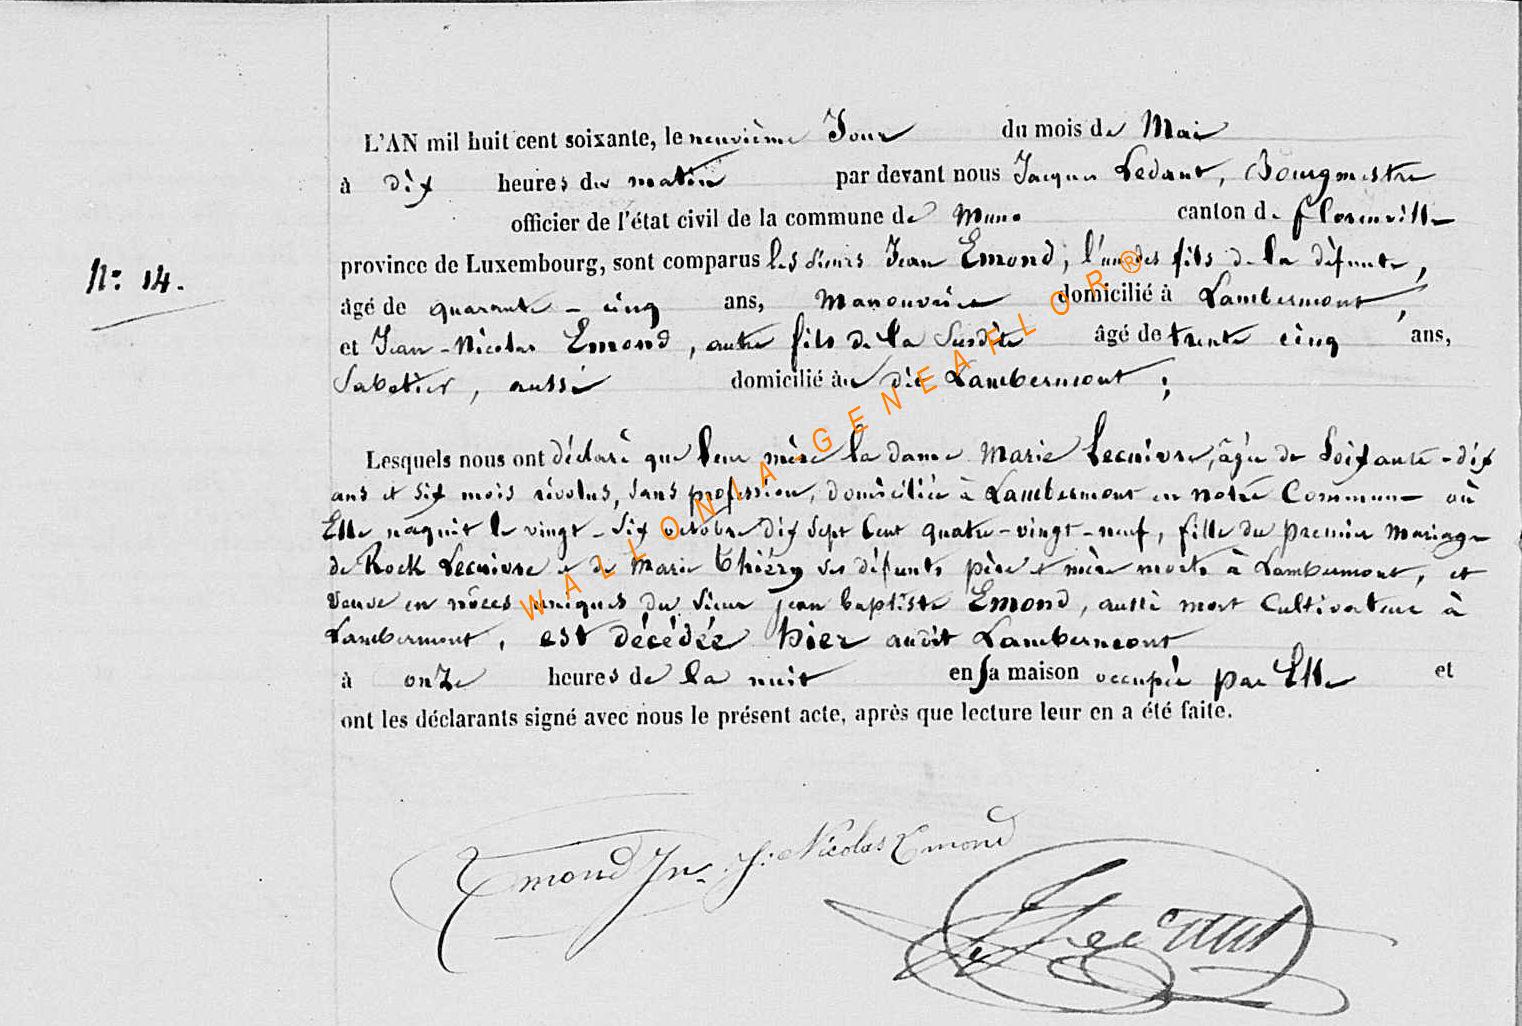 L'AN mil huit cent soixante, le neuvième Jour du mois de Mai
à dix heures du matin par devant nous Jacques Ledant, Bourgmestre
officier de l'état civil de la commune de Muno canton de florenville
province de Luxembourg, sont comparus les sieurs Jean Emond, l'un des fils de la défunte,
N° 14.
âgé de quarante-cinq ans, Manouvrier domicilié à Lambermont,
et Jean-Nicolas Emond, autre fils de la Susdite âgé de trente cinq ans,
Sabotier, aussi domicilié au dit Lambermont ;
Lesquels nous ont déclaré que leur mère la dame Marie Lecuivre, âgée de Soixante-dix
ans et six mois révolus, sans profession, domiciliée à Lambermont en notre Commune où
Elle naquit le vingt-six octobre dix sept cent quatre-vingt-neuf, fille du premier Mariage
de Rock Lecuivre et de Marie Thiéry ses défunts père et mère morts à Lambermont, et
Veuve en nôces uniques du sieur jean baptiste Emond, aussi mort Cultivateur à
Lambermont, est décédée hier audit Lambermont
à onze heures de la nuit en sa maison occupée par Elle et
ont les déclarants signé avec nous le présent acte, après que lecture leur en a été faite.
Emond Jn. J: Nicolas Emond
J Ledant
WALLONIA-GENEAFLOR®